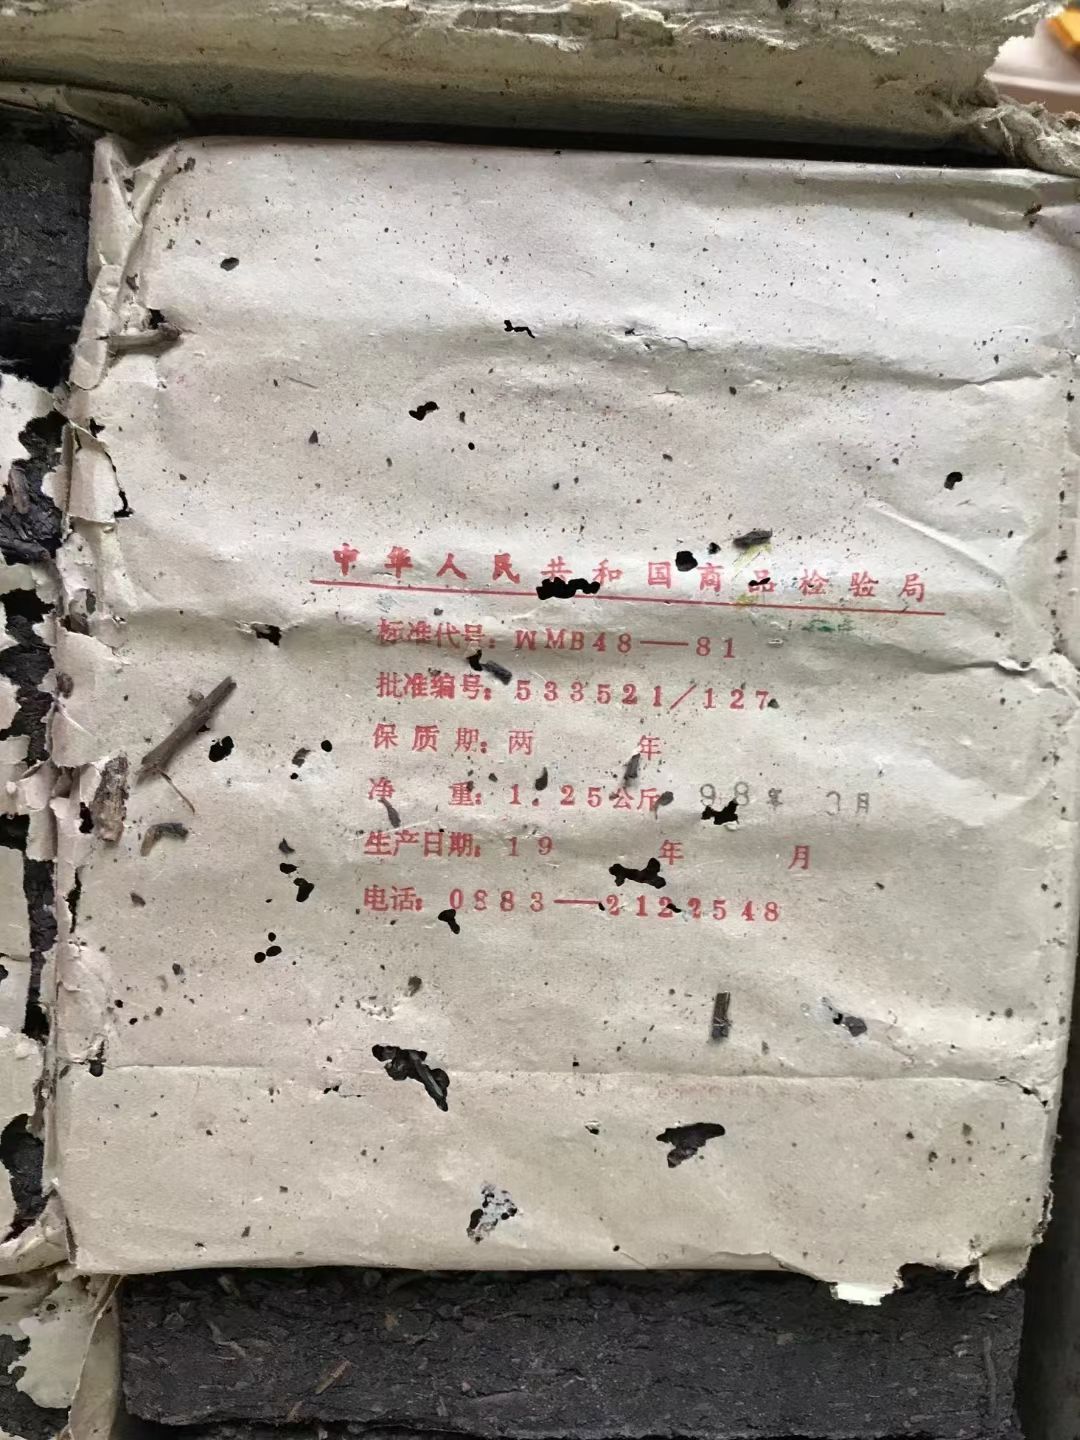 中华人民共和国商品检验局
标准代号：WMB48—81
批准编号：533521/127
保质期：两 年
净 重：1.25公斤 98年 3月
生产日期：19 年 月
电话：0883—2122548